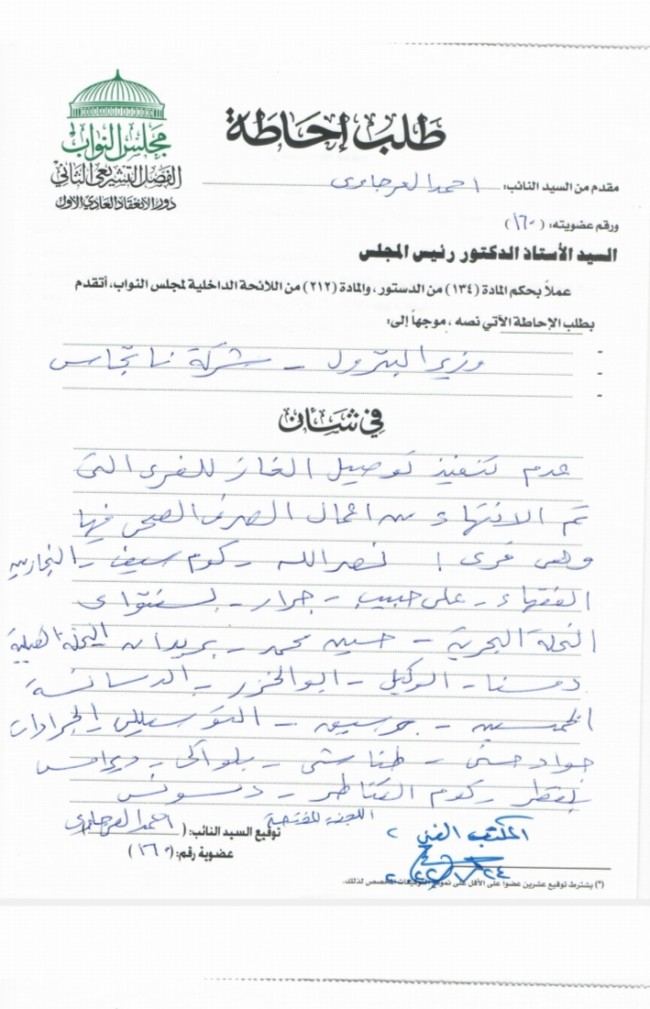 مجلس النواب
الفصل التشريعى الثانى
دور الانعقاد العادى الأول
طلب إحاطة
مقدم من السيد النائب: احمد العرجاوى
ورقم عضويته: (١٦٠)
السيد الأستاذ الدكتور رئيس المجلس
عملاً بحكم المادة (١٣٤) من الدستور، والمادة (٢١٢) من اللائحة الداخلية لمجلس النواب، أتقدم
بطلب الإحاطة الآتي نصه، موجهاً إلى:
- وزير البترول - شركة ناتجاس
-
-
في شأن
عدم تنفيذ توصيل الغاز للقرى التى
تم الانتهاء من اعمال الصرف الصحى فيها
وهى قرى : نصر الله - كوم سيف - النجارين
الفقهاء - على حبيب - جرار - بسنتواى
النخلة البحرية - حسين محمد - بريدان النخلة القبلية
دمسنا - الوكيل - ابو الخزر - الدسانسة
الخمسين - جوسيق - التوسيلى الجرادات
جواد حسنى - طناشى - بلواكى - ديرامس
بلقطر - كوم القناطر - دنسونس
توقيع السيد النائب: (احمد العرجاوى)
عضوية رقم: (١٦٠)
اللجنة المقترحة
المكتب الفنى
(*) يشترط توقيع عشرين عضوا على الأقل على نموذج التوقيعات المخصص لذلك.